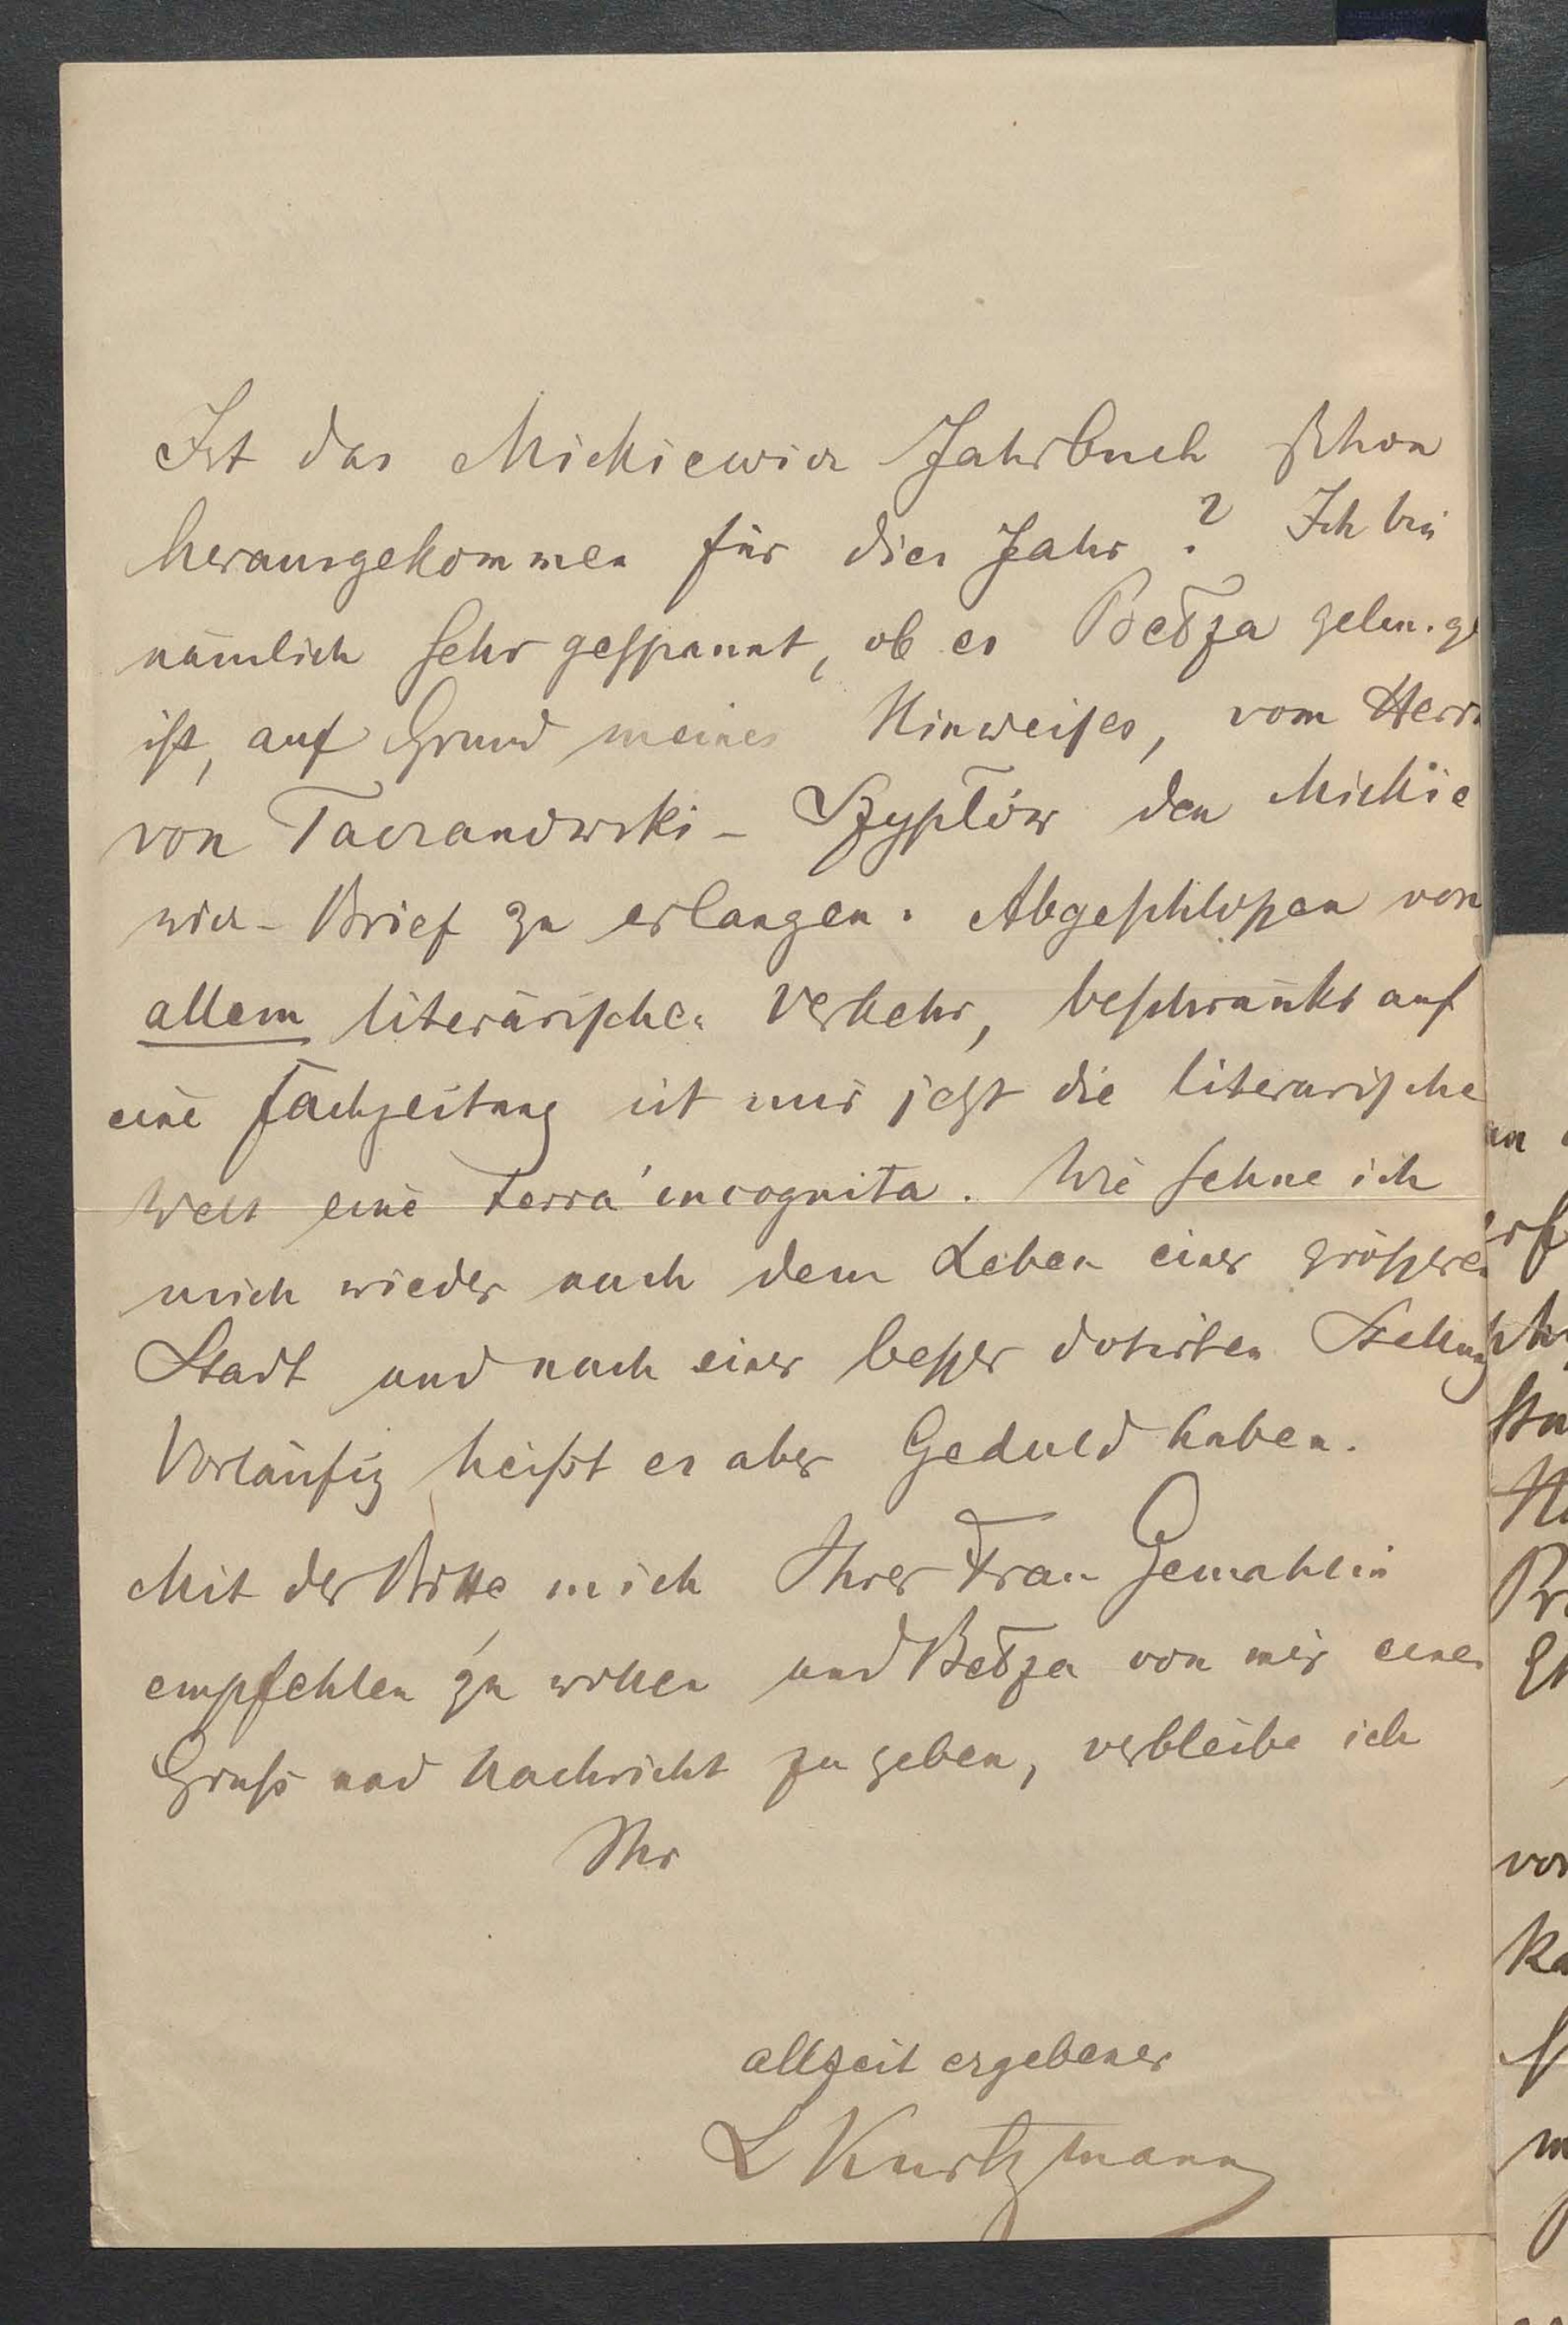 Ist das Mickiewicz Jahrbuch schon
herausgekommen für dies Jahr? Ich bin
nämlich sehr gespannt, ob es Bełza gelunge
ist, auf Grund meines Hinweises, vom Herrn
von Taczanowski - Szypłów den Mickie
wicz-Brief zu erlangen. Abgeschlossen von
allem literärischen Verkehr, beschränkt auf
eine Fachzeitung ist mir jetzt die literarische
Welt eine terra incognita. Wie sehne ich
mich wieder nach dem Leben einer größeren
Stadt und nach einer besser dotirten Stellung
Vorläufig heißt es aber Geduld haben.
Mit der Bitte, mich Ihrer Frau Gemahlin
empfehlen zu wollen und Bełza von mir einen
Gruß und Nachricht zu geben, verbleibe ich
Ihr
allzeit ergebener
L Kurtzmann